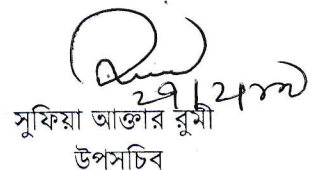 সুফিয়া আক্তার রুমী
উপসচিব